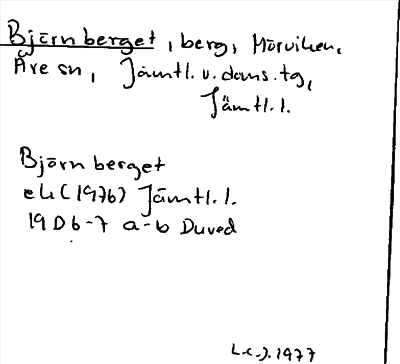 Björnberget, berg, Mörviken,
Åre sn, Jämtl. v. doms. tg,
Jämtl. l.
Björnberget
ek (1976) Jämtl. l.
19 D 6-7 a-b Duved
1977